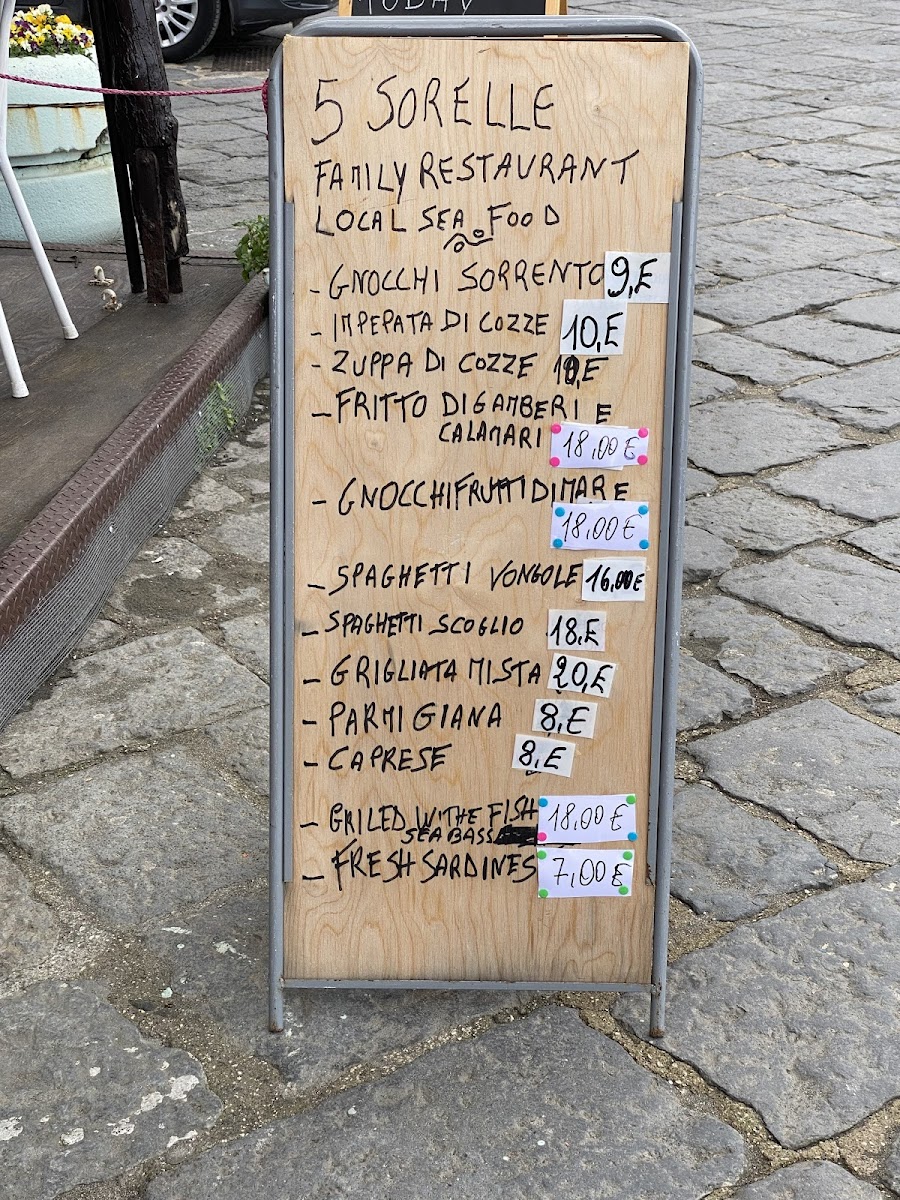 TODAY
5 SORELLE
FAMILY RESTAURANT
LOCAL SEA FOOD
- GNOCCHI SORRENTO 9,E
- IMPEPATA DI COZZE 10,E
- ZUPPA DI COZZE 10,E
- FRITTO DI GAMBERI E
CALAMARI 18,00 €
- GNOCCHI FRUTTI DI MARE
18,00 €
- SPAGHETTI VONGOLE 16,00€
- SPAGHETTI SCOGLIO 18,E
- GRIGLIATA MISTA 20,E
- PARMIGIANA 8,E
- CAPRESE 8,E
- GRILED WITHE FISH 18,00 €
SEA BASS
- FRESH SARDINES 7,00 €